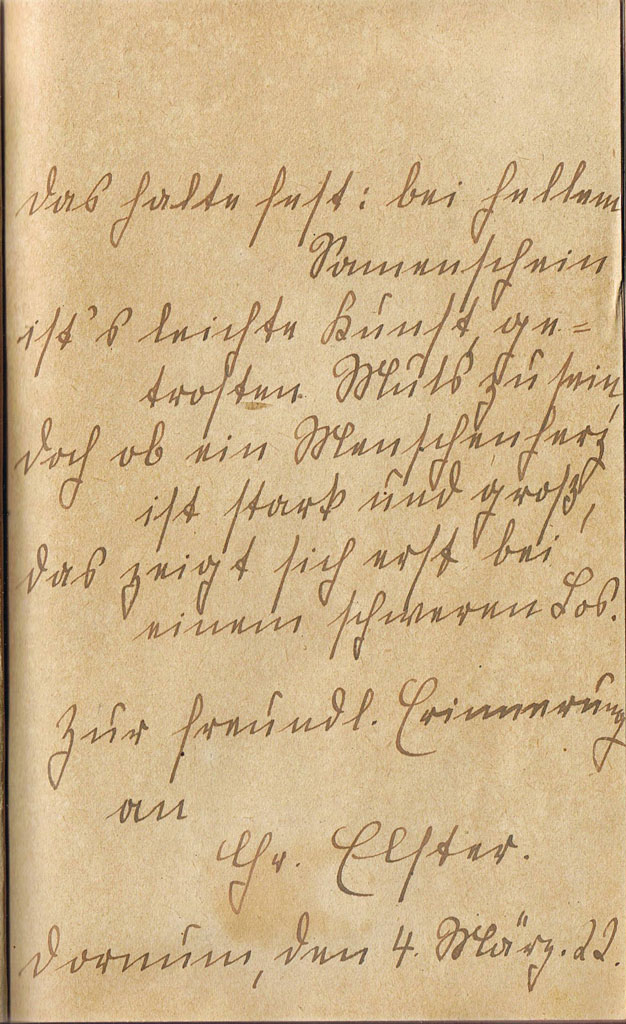 Das halte fest: bei hellem
Sonnenschein
ist's leichte Kunst, ge=
trosten Muts zu sein,
doch ob ein Menschenherz
ist stark und groß,
das zeigt sich erst bei
einem schweren Los.
Zur freundl. Erinnerung
an
Chr. Elster.
Dornum, den 4. März. 22.